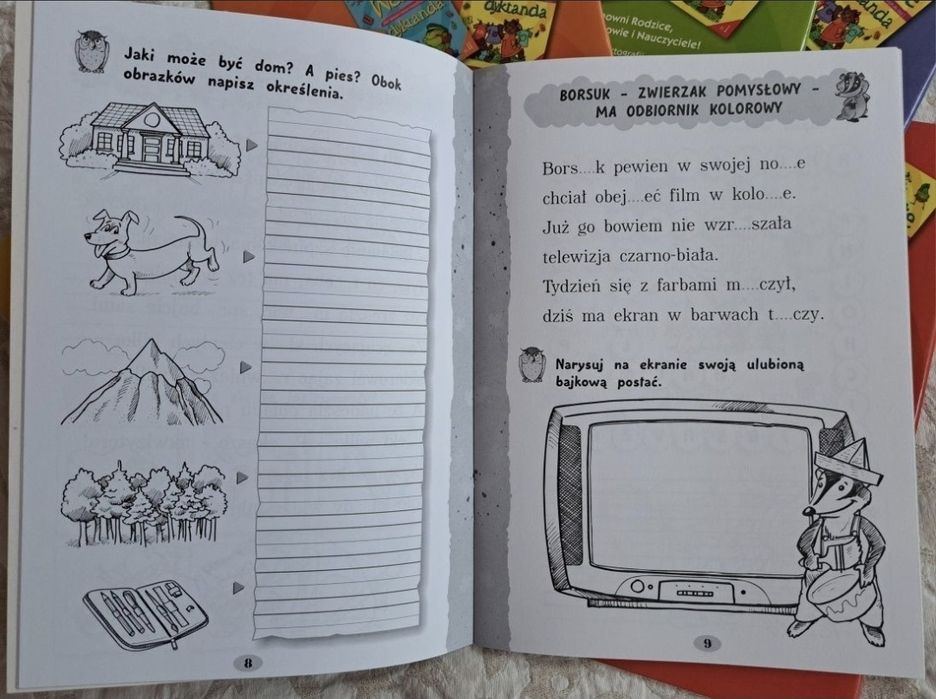 dyktanda
dyktanda
nowni Rodzice,
owie i Nauczyciele!
Jaki może być dom? A pies? Obok
obrazków napisz określenia.
8
BORSUK – ZWIERZAK POMYSŁOWY –
MA ODBIORNIK KOLOROWY
Bors....k pewien w swojej no....e
chciał obej....eć film w kolo....e.
Już go bowiem nie wzr....szała
telewizja czarno-biała.
Tydzień się z farbami m....czył,
dziś ma ekran w barwach t....czy.
Narysuj na ekranie swoją ulubioną
bajkową postać.
9